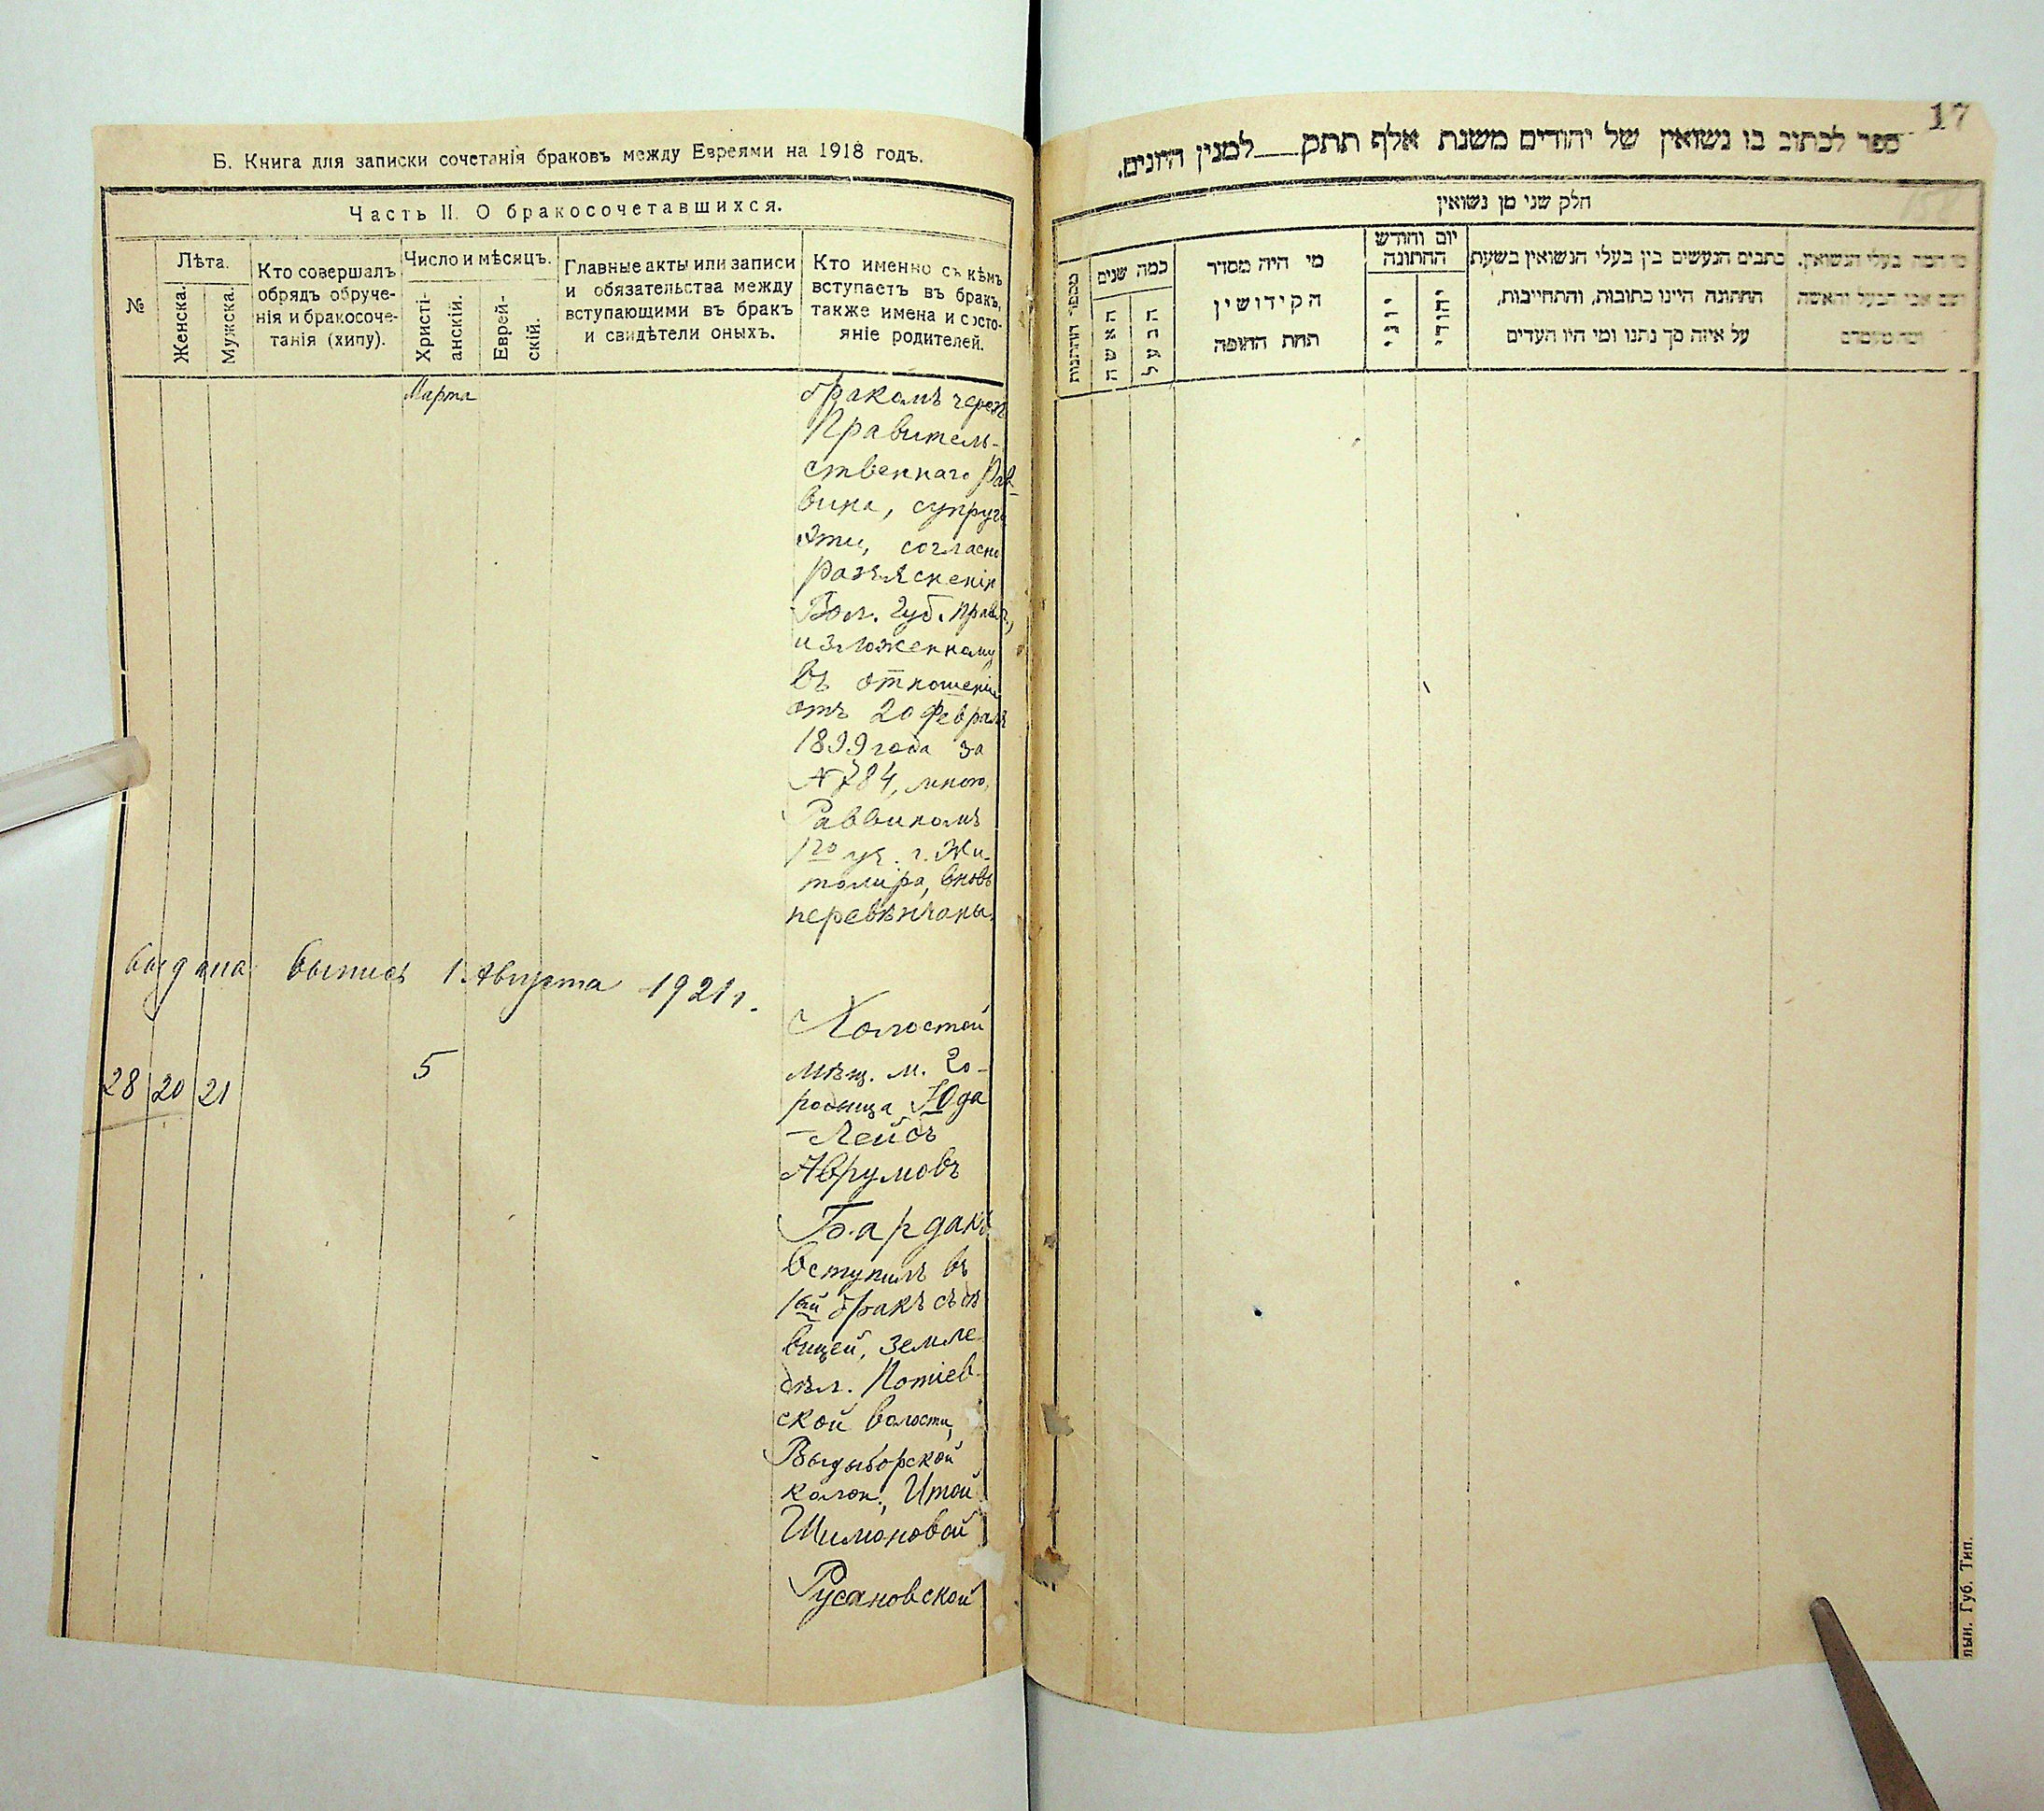 Б. Книга для записки сочетанія браковъ между Евреями на 1918 годъ.
Часть II. О бракосочетавшихся.
№
Лѣта.
Женска.
Мужска.
Кто совершалъ
обрядъ обруче-
нія и бракосоче-
танія (хипу).
Число и мѣсяцъ.
Христі-
анскій.
Еврей-
скій.
Главные акты или записи
и обязательства между
вступающими въ бракъ
и свидѣтели оныхъ.
Кто именно съ кѣмъ
вступаетъ въ бракъ,
также имена и состо-
яніе родителей.
Марта
бракомъ черезъ
Правитель-
ственнаго Рав-
вина, супруги
эти, согласно
разъясненію
Вол. Губ. Правл.,
изложенному
въ отношеніи
отъ 20 Февраля
1899 года за
№ 784, мною,
Раввиномъ
1го уч. г. Жи-
томіра, вновь
перевѣнчаны.
выдана выпись 1 Августа 1921 г.
28 20 21 5
Холостой
мѣщ. м. Го-
родница Юда
-Лейбъ
Аврумовъ
Бардакъ
вступилъ въ
1ый бракъ съ дѣ
вицей, земле
дѣл. Потіев-
ской волости,
Выдыборской
колон., Итой
Шимоновой
Русановской
17
ספר לכתוב בו נשואין של יהודים משנת אלף תתק___ למנין היונים.
חלק שני מן נשואין
מספר החתנות
כמה שנים
האשה
הבעל
מי היה מסדר
הקידושין
תחת החופה
יום וחודש
החתונה
יוני
יהודי
כתבים הנעשים בין בעלי הנשואין בשעת
החתונה היינו כתובות, והתחייבות,
על איזה סך נתנו ומי היו העדים
מי המה בעלי הנשואין,
ושם אבי הבעל והאשה
ומה מעמדם
Губ. Тип.